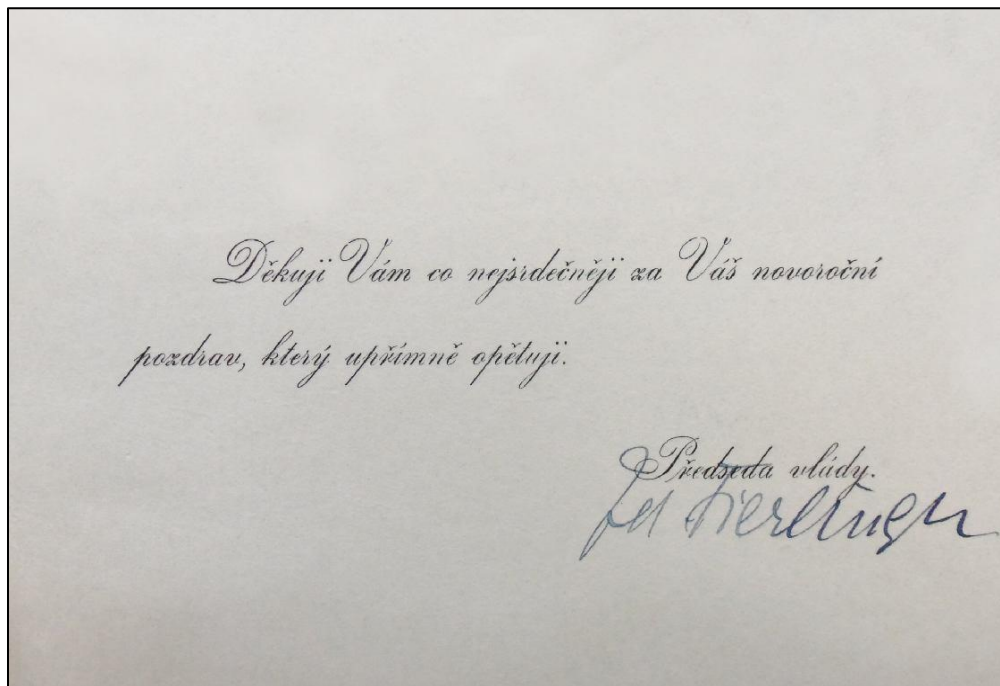 Děkuji Vám co nejsrdečněji za Váš novoroční
pozdrav, který upřímně opětuji.
Předseda vlády.
Fierlinger